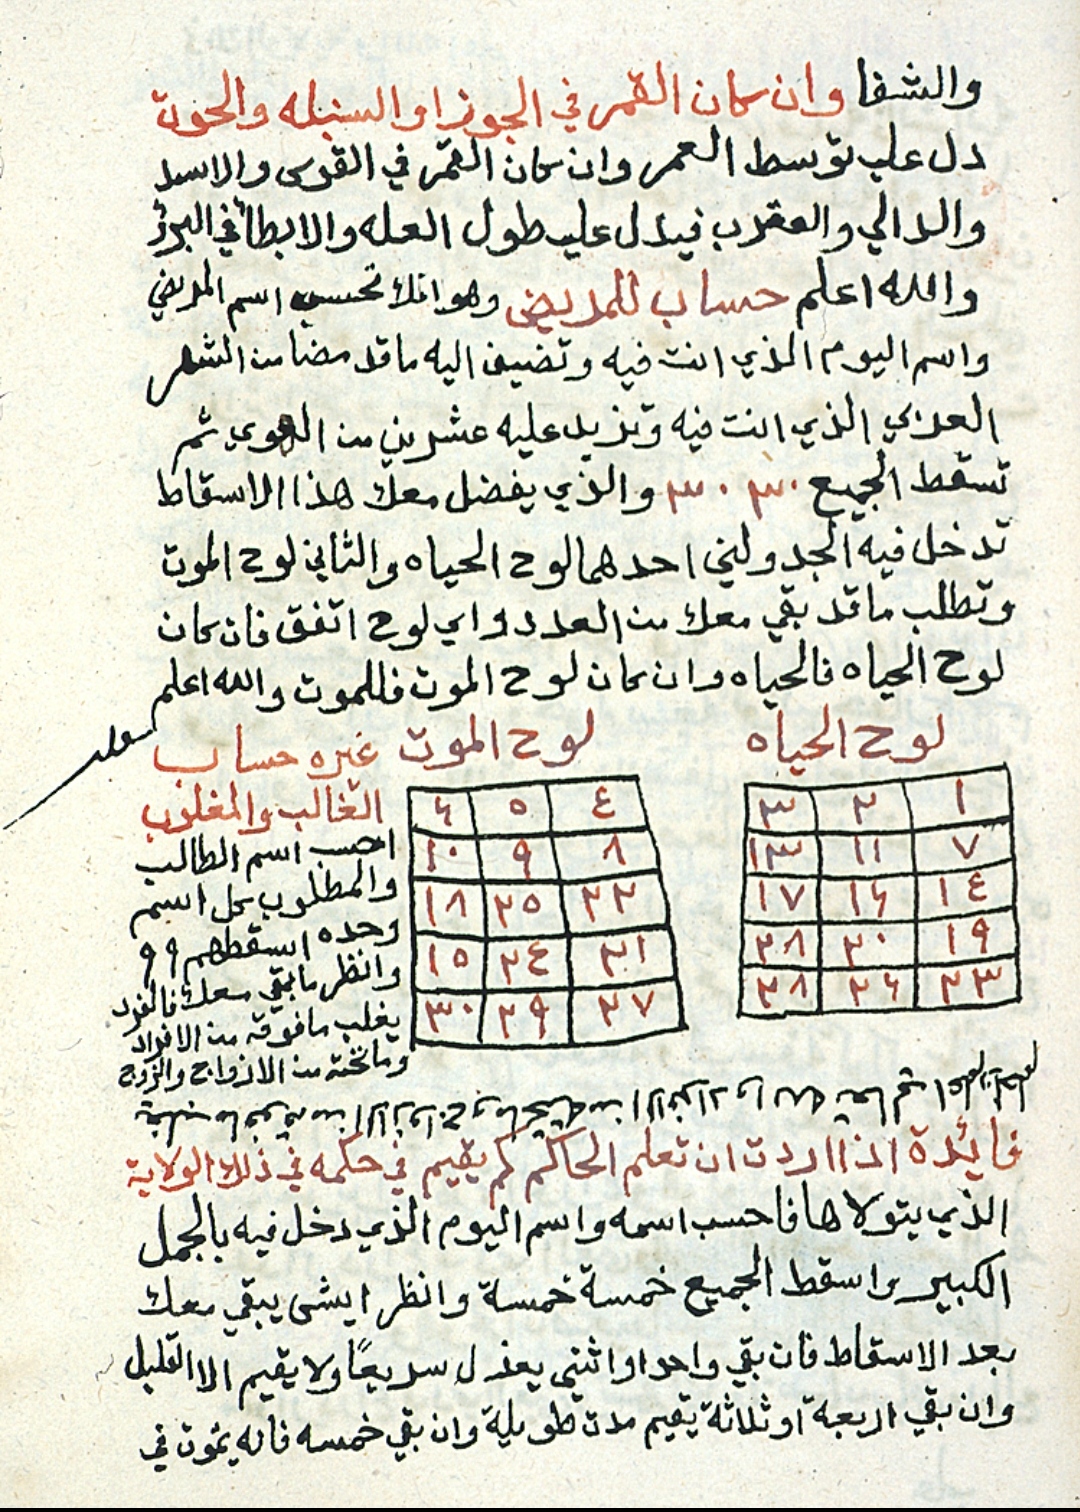 والشفا وان كان القمر في الجوزا والسنبله والحوت
دل علي توسط العمر وان كان القمر في القوس والاسد
والدالي والعقرب فيدل علي طول العله والابطا في البرؤ
والله اعلم حساب للمريض وهو انك تحسب اسم المريض
واسم اليوم الذي انت فيه وتضيف اليه ما قد مضا من الشهر
العربي الذي انت فيه وتزيد عليه عشرين من الهوي ثم
تسقط الجميع ٣٠ ٣٠ والذي يفضل معك هذا الاسقاط
تدخل فيه الجدولين احدهما لوح الحياه والثاني لوح الموت
وتطلب ما قد بقي معك من العدد واي لوح اتفق فان كان
لوح الحياه فالحياه وان كان لوح الموت فللموت والله اعلم
لوح الحياه
١ ٢ ٣
٧ ١١ ١٣
١٤ ١٦ ١٧
١٩ ٢٠ ٢٨
٢٣ ٢٦ ٢٨
لوح الموت
٤ ٥ ٦
٨ ٩ ١٠
٢٢ ٢٥ ١٨
٢١ ٢٤ ١٥
٢٧ ٢٩ ٣٠
غيره حساب
الغالب والمغلوب
احسب اسم الطالب
والمطلوب كل اسم
وحده اسقطهم ٩ ٩
وانظر ما بقي معك فالفرد
يغلب ما فوقه من الافراد
وما تحته من الازواج والزوج
فائدة اذا اردت ان تعلم الحاكم كم يقيم في حكمه في ذلك الولاية
الذي يتولاها فاحسب اسمه واسم اليوم الذي دخل فيه بالجمل
الكبير واسقط الجميع خمسة خمسة وانظر ايشى يبقي معك
بعد الاسقاط فان بقي واحد او اثنى يعزل سريعًا ولا يقيم الا القليل
وان بقي اربعة او ثلاثة يقيم مدة طويلة وان بقي خمسه فانه يموت في